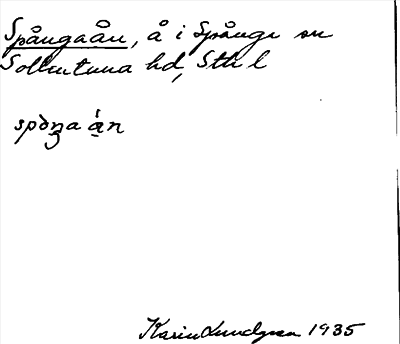 Spångaån, å i Spånga sn
Sollentuna hd, Sthl
spòŋa á̱n
Karin Lundgren 1935